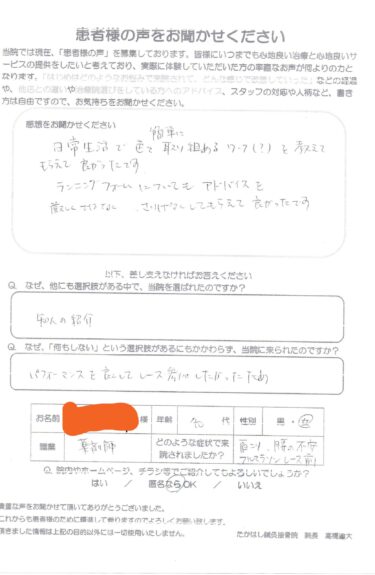 患者様の声をお聞かせください
当院では現在、「患者様の声」を募集しております。皆様にいつまでも心地良い治療と心地良いサ
ービスの提供をしたいと考えており、実際に体験していただいた方の率直なお声が何よりの力と
なります。「はじめはどのようなお悩みで来院されて、どんな感じで改善していった」などの経過
や、他店との違いや治療院選びをしている方へのアドバイス、スタッフの対応や人柄など、書き
方は自由ですので、お気持ちをお聞かせください。
感想をお聞かせください
簡単に
日常生活で 取り組める ワーク(?)を 教えて
もらえて 良かったです
ランニングフォームについても アドバイスを
さりげなく してもらえて 良かったです
以下、差し支えなければお答えください
Q. なぜ、他にも選択肢がある中で、当院を選ばれたのですか?
知人の紹介
Q. なぜ、「何もしない」という選択肢があるにもかかわらず、当院に来られたのですか?
パフォーマンスを 良くして レース 参加したかったため
お名前 様 年齢 代 性別 男・女
職業 薬剤師 どのような症状で来院されましたか? 肩こり、腰の不安
フルマラソンレース前
Q. 院内やホームページ、チラシ等でご紹介してもよろしいでしょうか?
はい / 匿名ならOK / いいえ
貴重な声をお聞かせて頂いてありがとうございました。
これからも患者様のために精進して参りますのでよろしくお願い致します。
頂きました情報は上記の目的以外には一切使用いたしません。 たかはし鍼灸接骨院 院長 高橋雄大